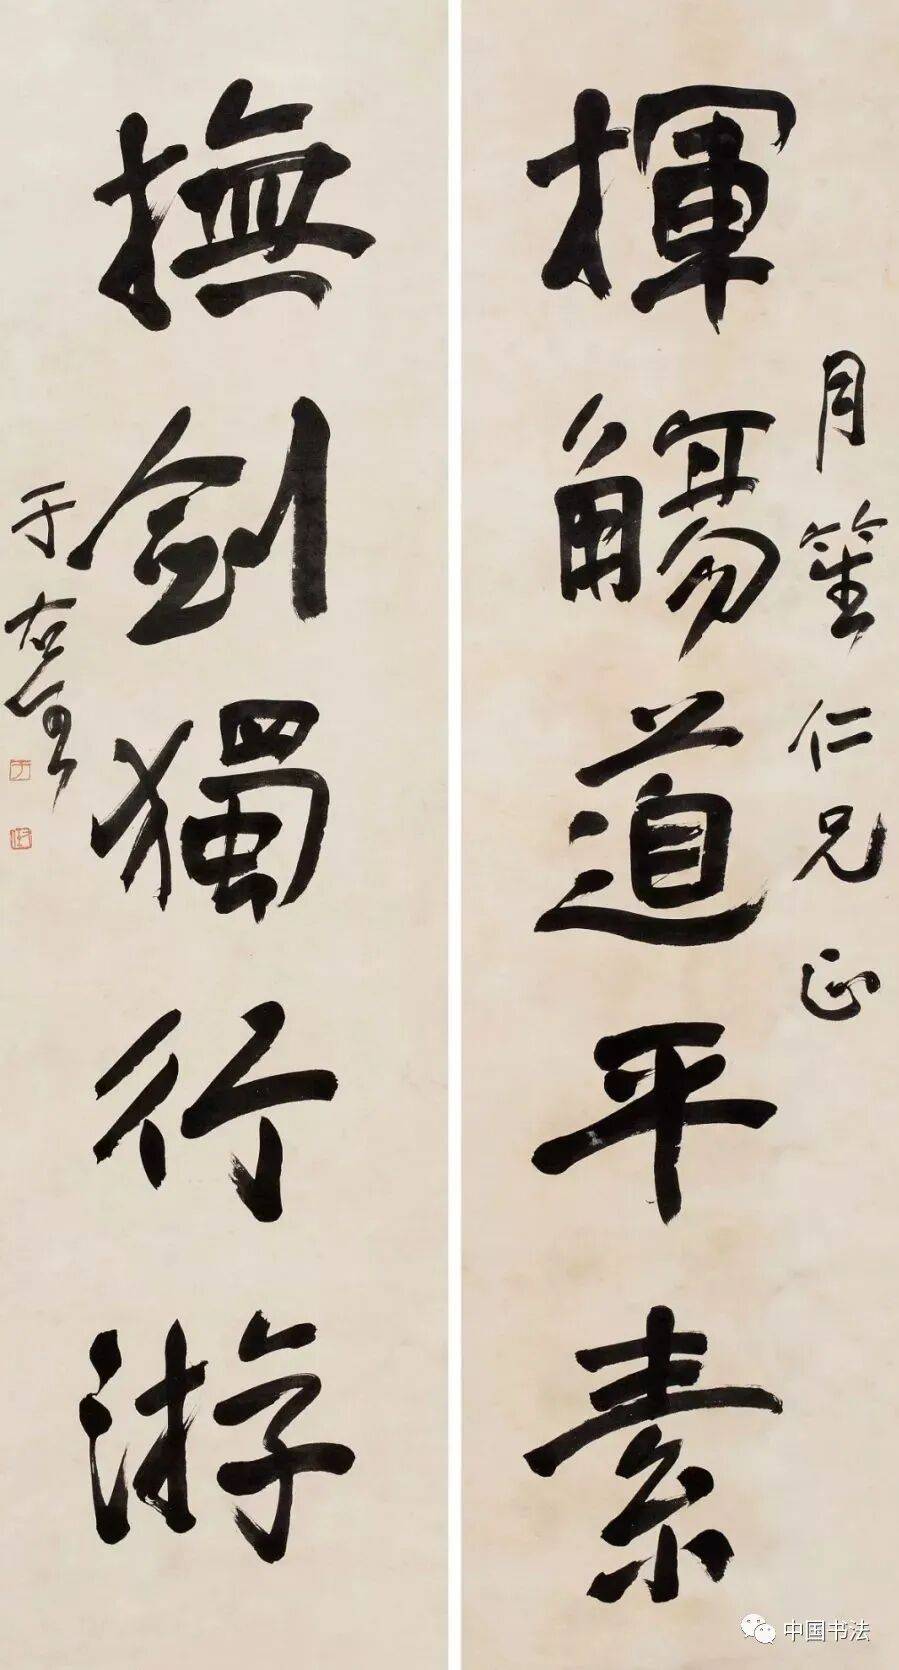 揮觴道平素
月笙仁兄正
撫劍獨行游
于右任
中国书法